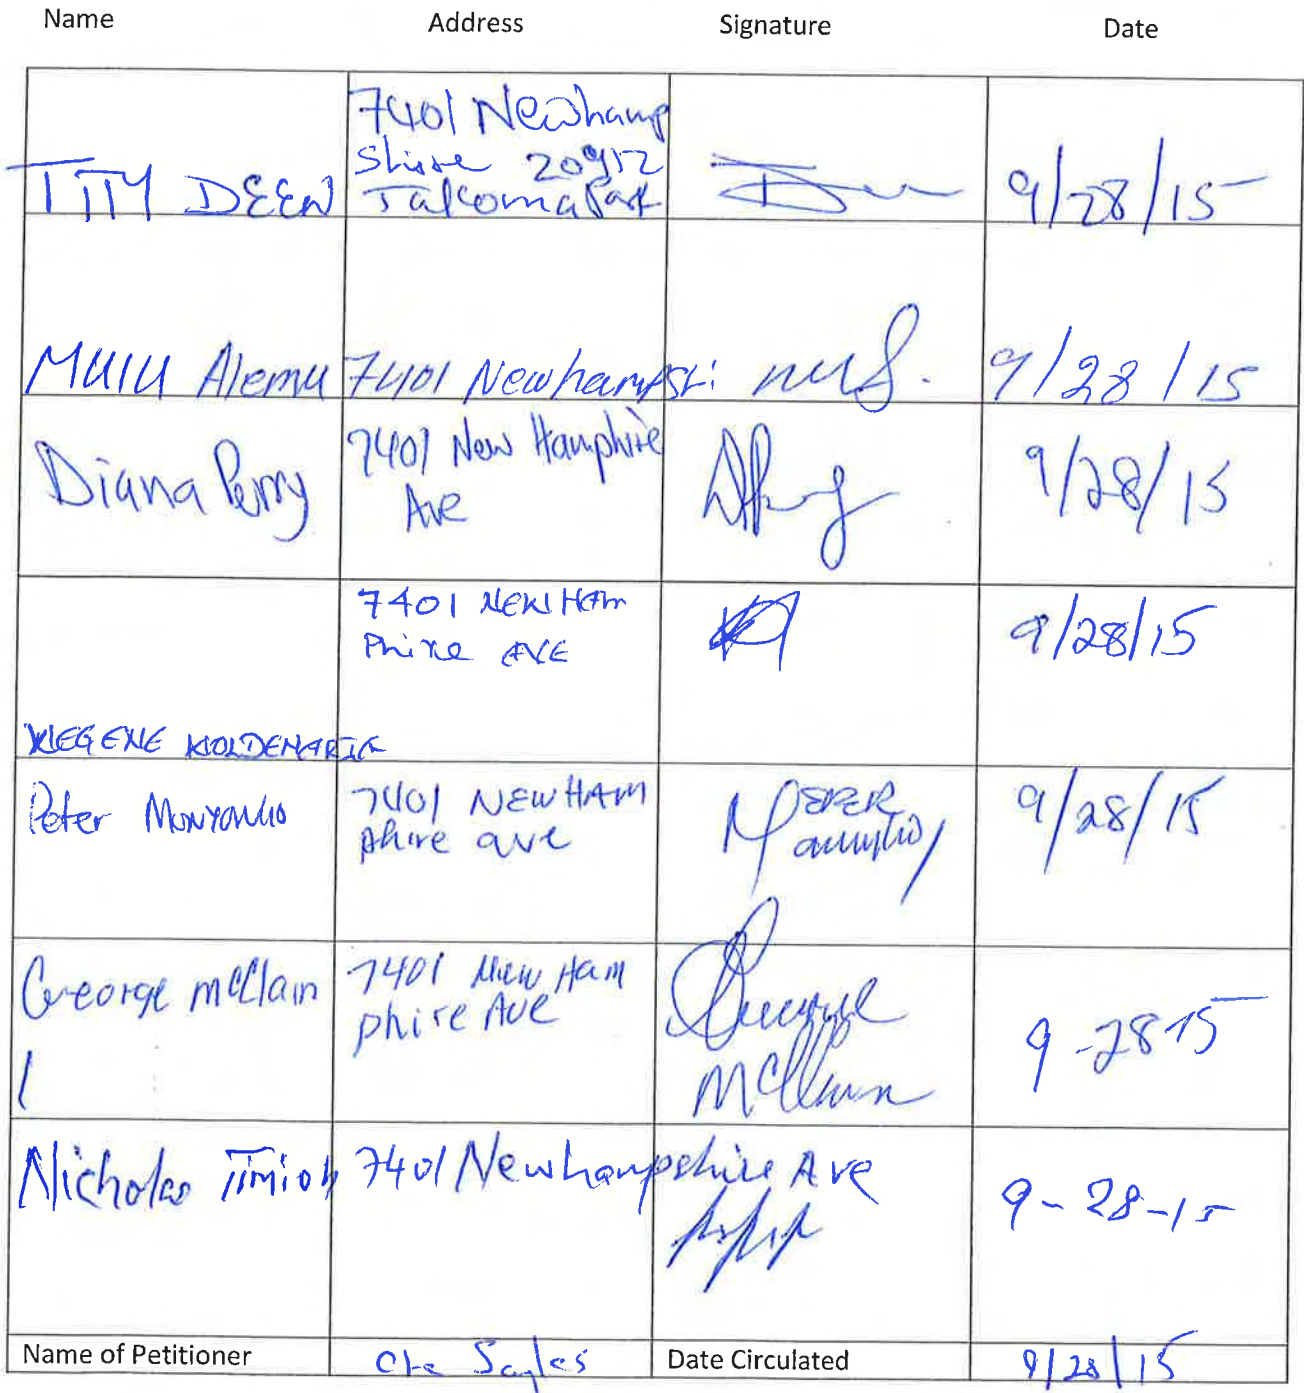 Name Address Signature Date
TITY DEEN 7401 Newhamp
Shire 20912
Takoma Park 9/28/15
Mulu Alemu 7401 Newhampshi 9/28/15
Diana Perry 7401 New Hamphire
Ave 9/28/15
7401 NEW HAM
Phire AVE 9/28/15
WEGENE WOLDEMARIA
Peter 7401 NEW HAM
phire ave 9/28/15
George McClain 7401 New Ham
phire Ave George
McClain 9-28-15
Nicholas 7401 Newhampshire Ave 9-28-15
Name of Petitioner Sayles Date Circulated 9/28/15